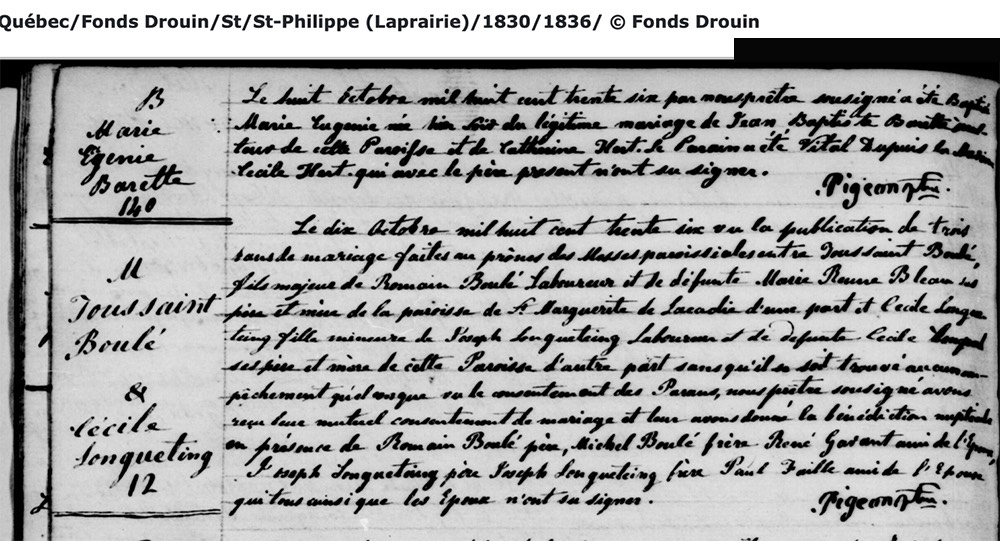 Québec/Fonds Drouin/St/St-Philippe (Laprairie)/1830/1836/ © Fonds Drouin
B
Marie
Egenie
Barette
140
Le huit octobre mil huit cent trente six par nous prêtre sousigné a été Baptisé
Marie Eugenie née hier soir du légitime mariage de Jean Baptiste Barette
de cette Paroisse et de Catherine Hert. Le Parain a été Vital Dupuis la
Cecile Hert qui avec le père present n'ont su signer.
Pigeon ptre.
M
Toussaint
Boulé
&
Cécile
Longueting
12
Le dix Octobre mil huit cent trente six vu la publication de trois
bans de mariage faites au prônes des Messes paroissiales entre Toussaint Boulé,
fils majeur de Romain Boulé Laboureur et de défunte Marie Reine Bleau ses
père et mère de la paroisse de Ste Marguerite de Lacadie d'une part et Cécile Longue
ting fille mineure de Joseph Longueting Laboureur et de defunte Cecile
ses père et mère de cette Paroisse d'autre part sans qu'il se soit trouvé aucun em-
pêchement quelconque vu le consentement des Parens, nous prêtre sousigné avons
reçu leur mutuel consentement de mariage et leur avons donné la bénédiction nuptiale
en présence de Romain Boulé père, Michel Boulé frère René Gavant ami de l'Epoux,
Joseph Longueting père Joseph Longueting frère Paul Faille ami de l'Epouse
qui tous ainsi que les Epoux n'ont su signer.
Pigeon ptre.